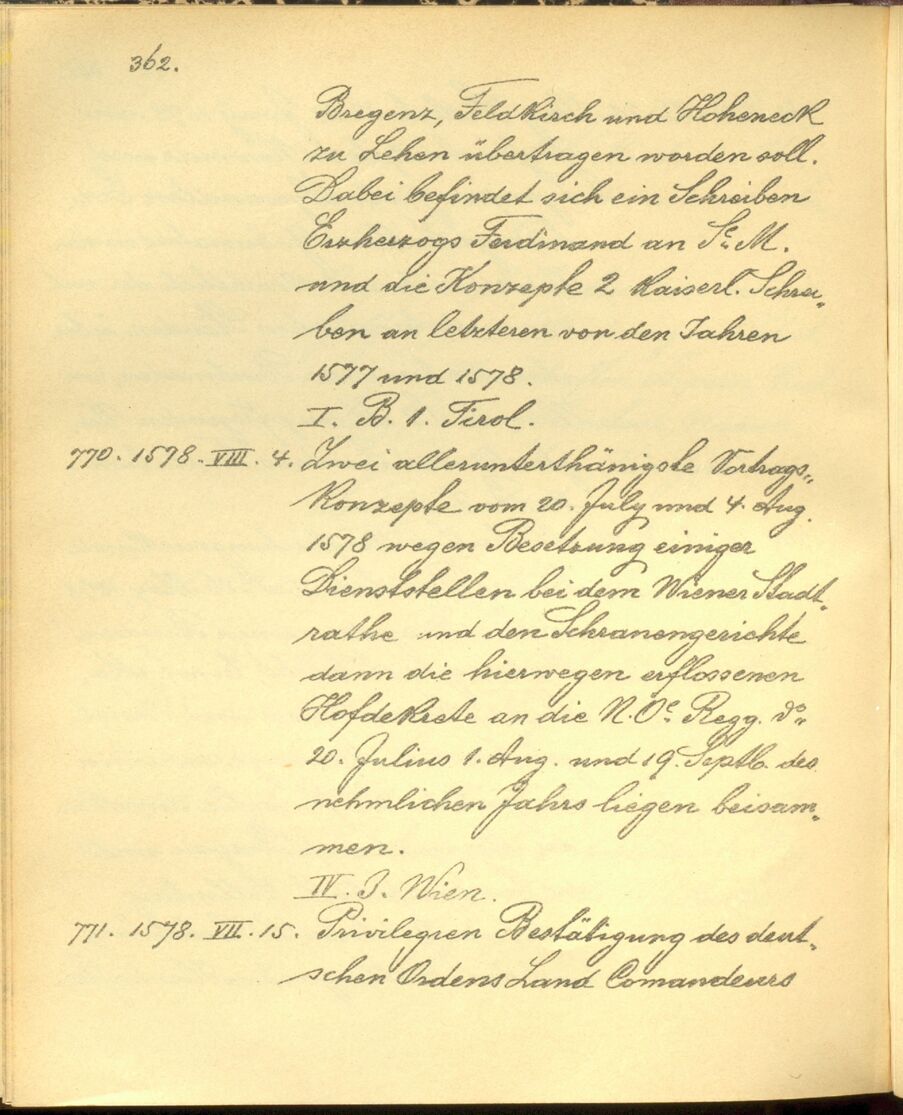 362.
Bregenz, Feldkirch und Hoheneck
zu Lehen übertragen worden soll.
Dabei befindet sich ein Schreiben
Erzherzogs Ferdinand an Sr. M.
und die Konzepte 2 Kaiserl. Schrei„
ben an letzteren von den Jahren
1577 und 1578.
I. B. 1. Tirol.
770. 1578. VIII. 4. Zwei allerunterthänigste Vortrags„
Konzepte vom 20. July und 4. Aug.
1578 wegen Besetzung einiger
Dienststellen bei dem Wiener Stadt„
rathe und den Schranengerichte
dann die hierwegen erflossenen
Hofdekrete an die N. Oe. Regg. do„
20. Julius 1. Aug. und 19. Septb. des
nehmlichen Jahrs liegen beisam„
men.
IV. 3. Wien.
771. 1578. VII. 15. Privilegien Bestätigung des deut„
schen Ordens Land Comandeurs